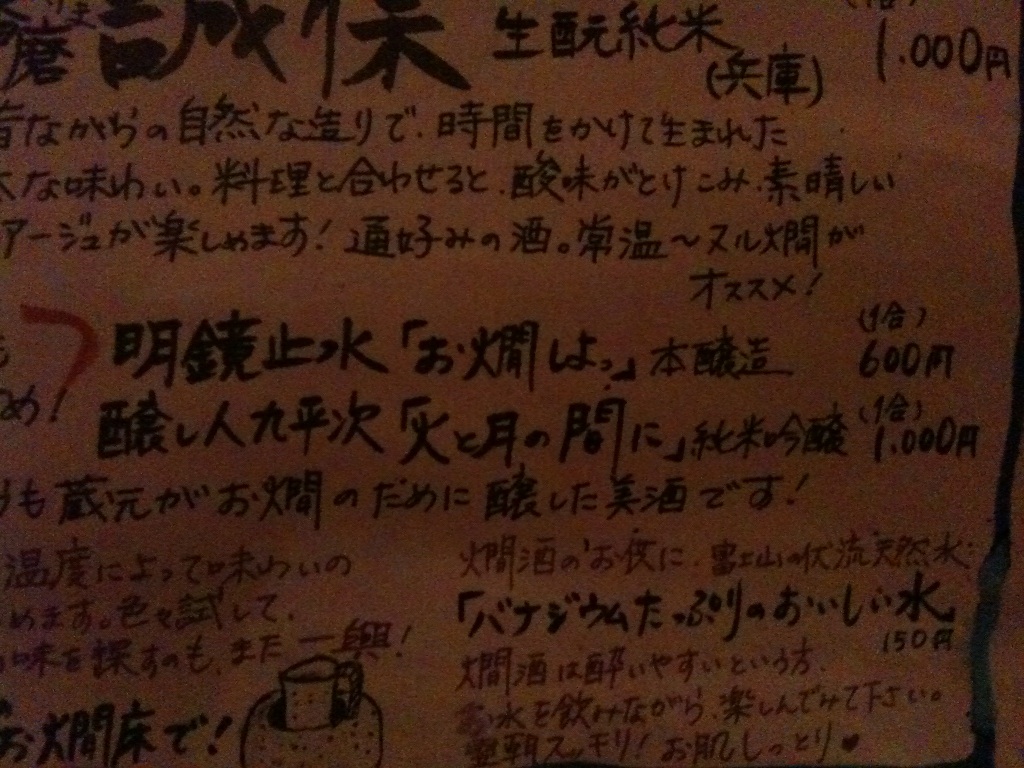 播磨 誠保 生酛純米 (兵庫) (1合) 1.000円
昔ながらの自然な造りで、時間をかけて生まれた
な味わい。料理と合わせると、酸味がとけこみ、素晴しい
アージュが楽しめます!通好みの酒。常温〜ヌル燗が
オススメ!
明鏡止水「お燗しよっ」本醸造 (1合) 600円
め!
醸し人九平次「火と月の間に」純米吟醸 (1合) 1.000円
も蔵元がお燗のために醸した美酒です!
温度によって味わいの
めます。色々試して、
味を探すのも、また一興!
お燗床で!
燗酒のお供に、富士山の伏流天然水:
「バナジウムたっぷりのおいしい水」
150円
燗酒は酔いやすいという方、
お水を飲みながら、楽しんでみて下さい。
翌朝スッキリ!お肌しっとり♥